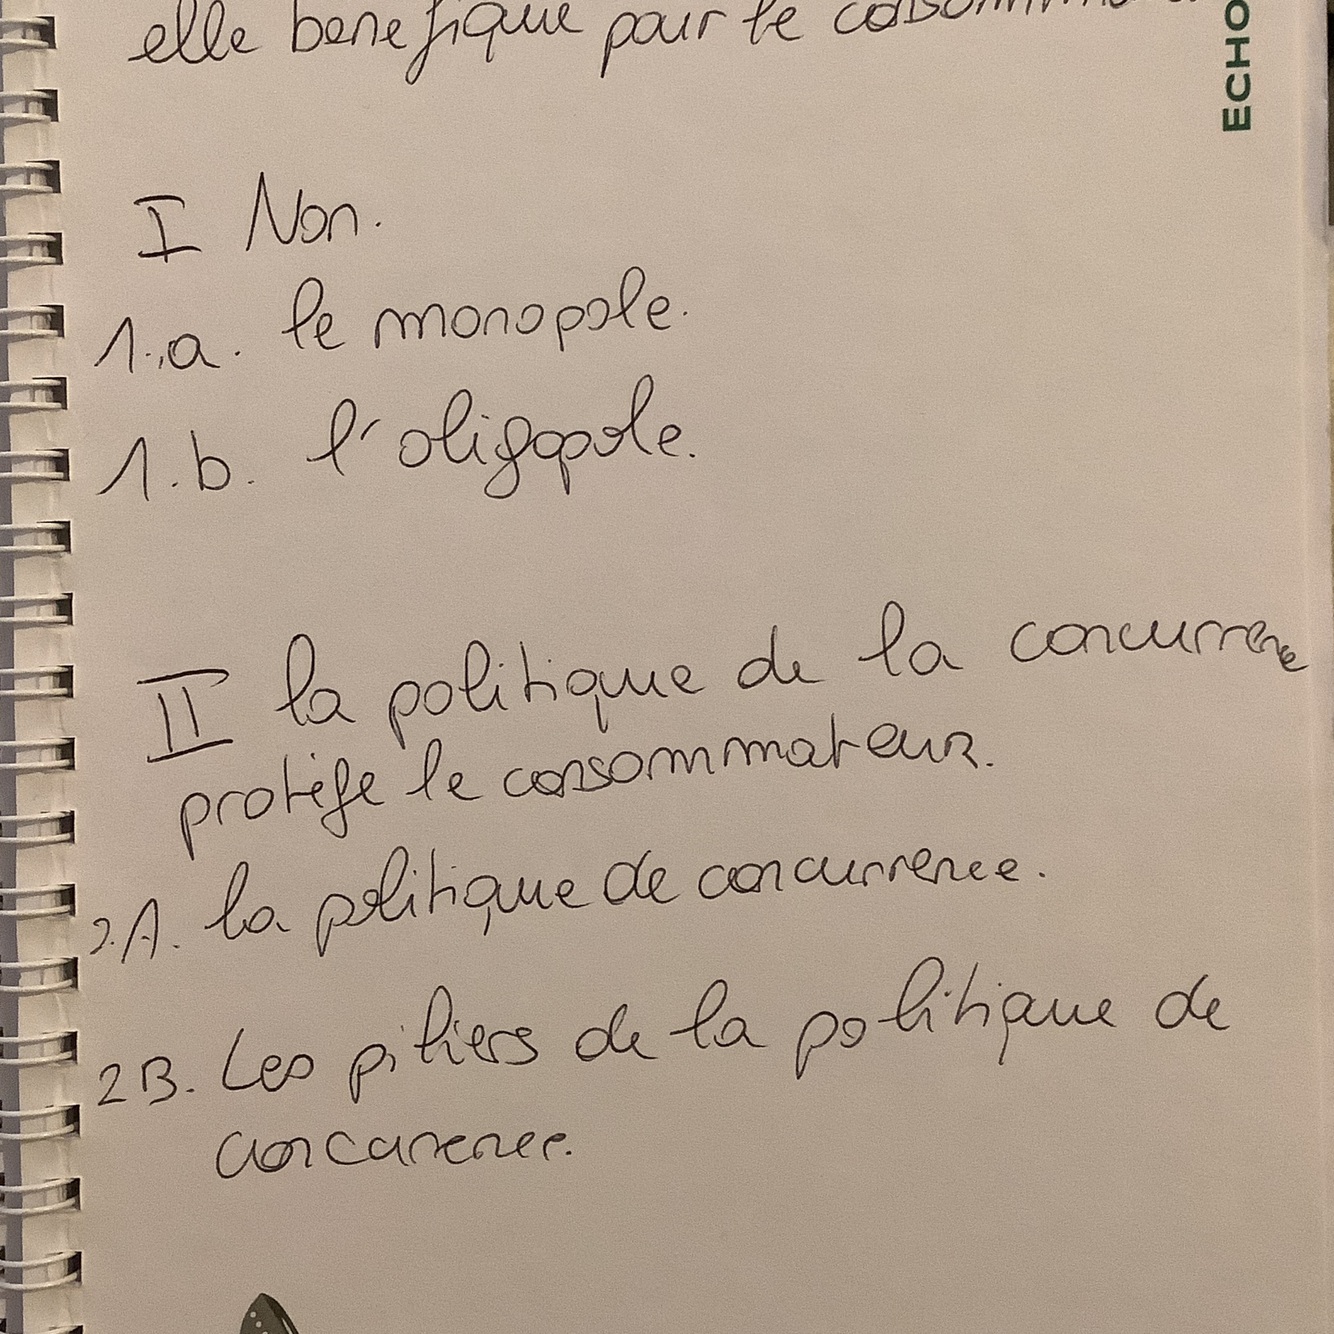 elle benefique pour le
ECHO
I Non.
1.a. le monopole.
1.b. l'oligopole.
II la politique de la concurrence
protège le consommateur.
2.A. la politique de concurrence.
2B. Les piliers de la politique de
concurrence.